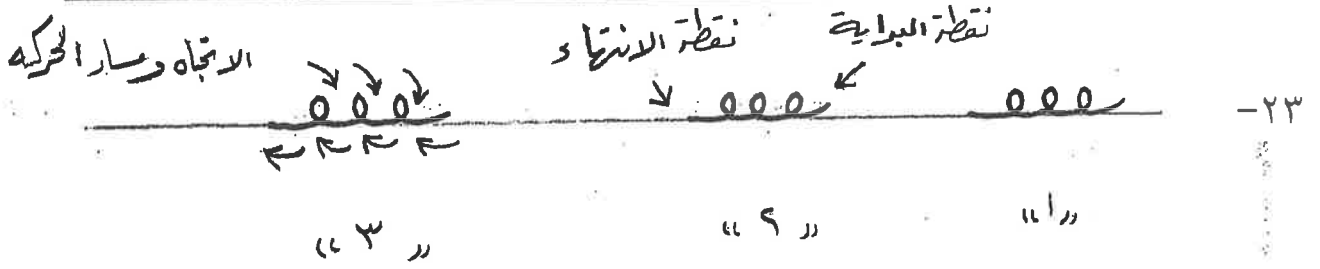 نقطة البداية
نقطة الانتهاء
الاتجاه ومسار الحركه
٢٣-
"١"
"٢"
"٣"